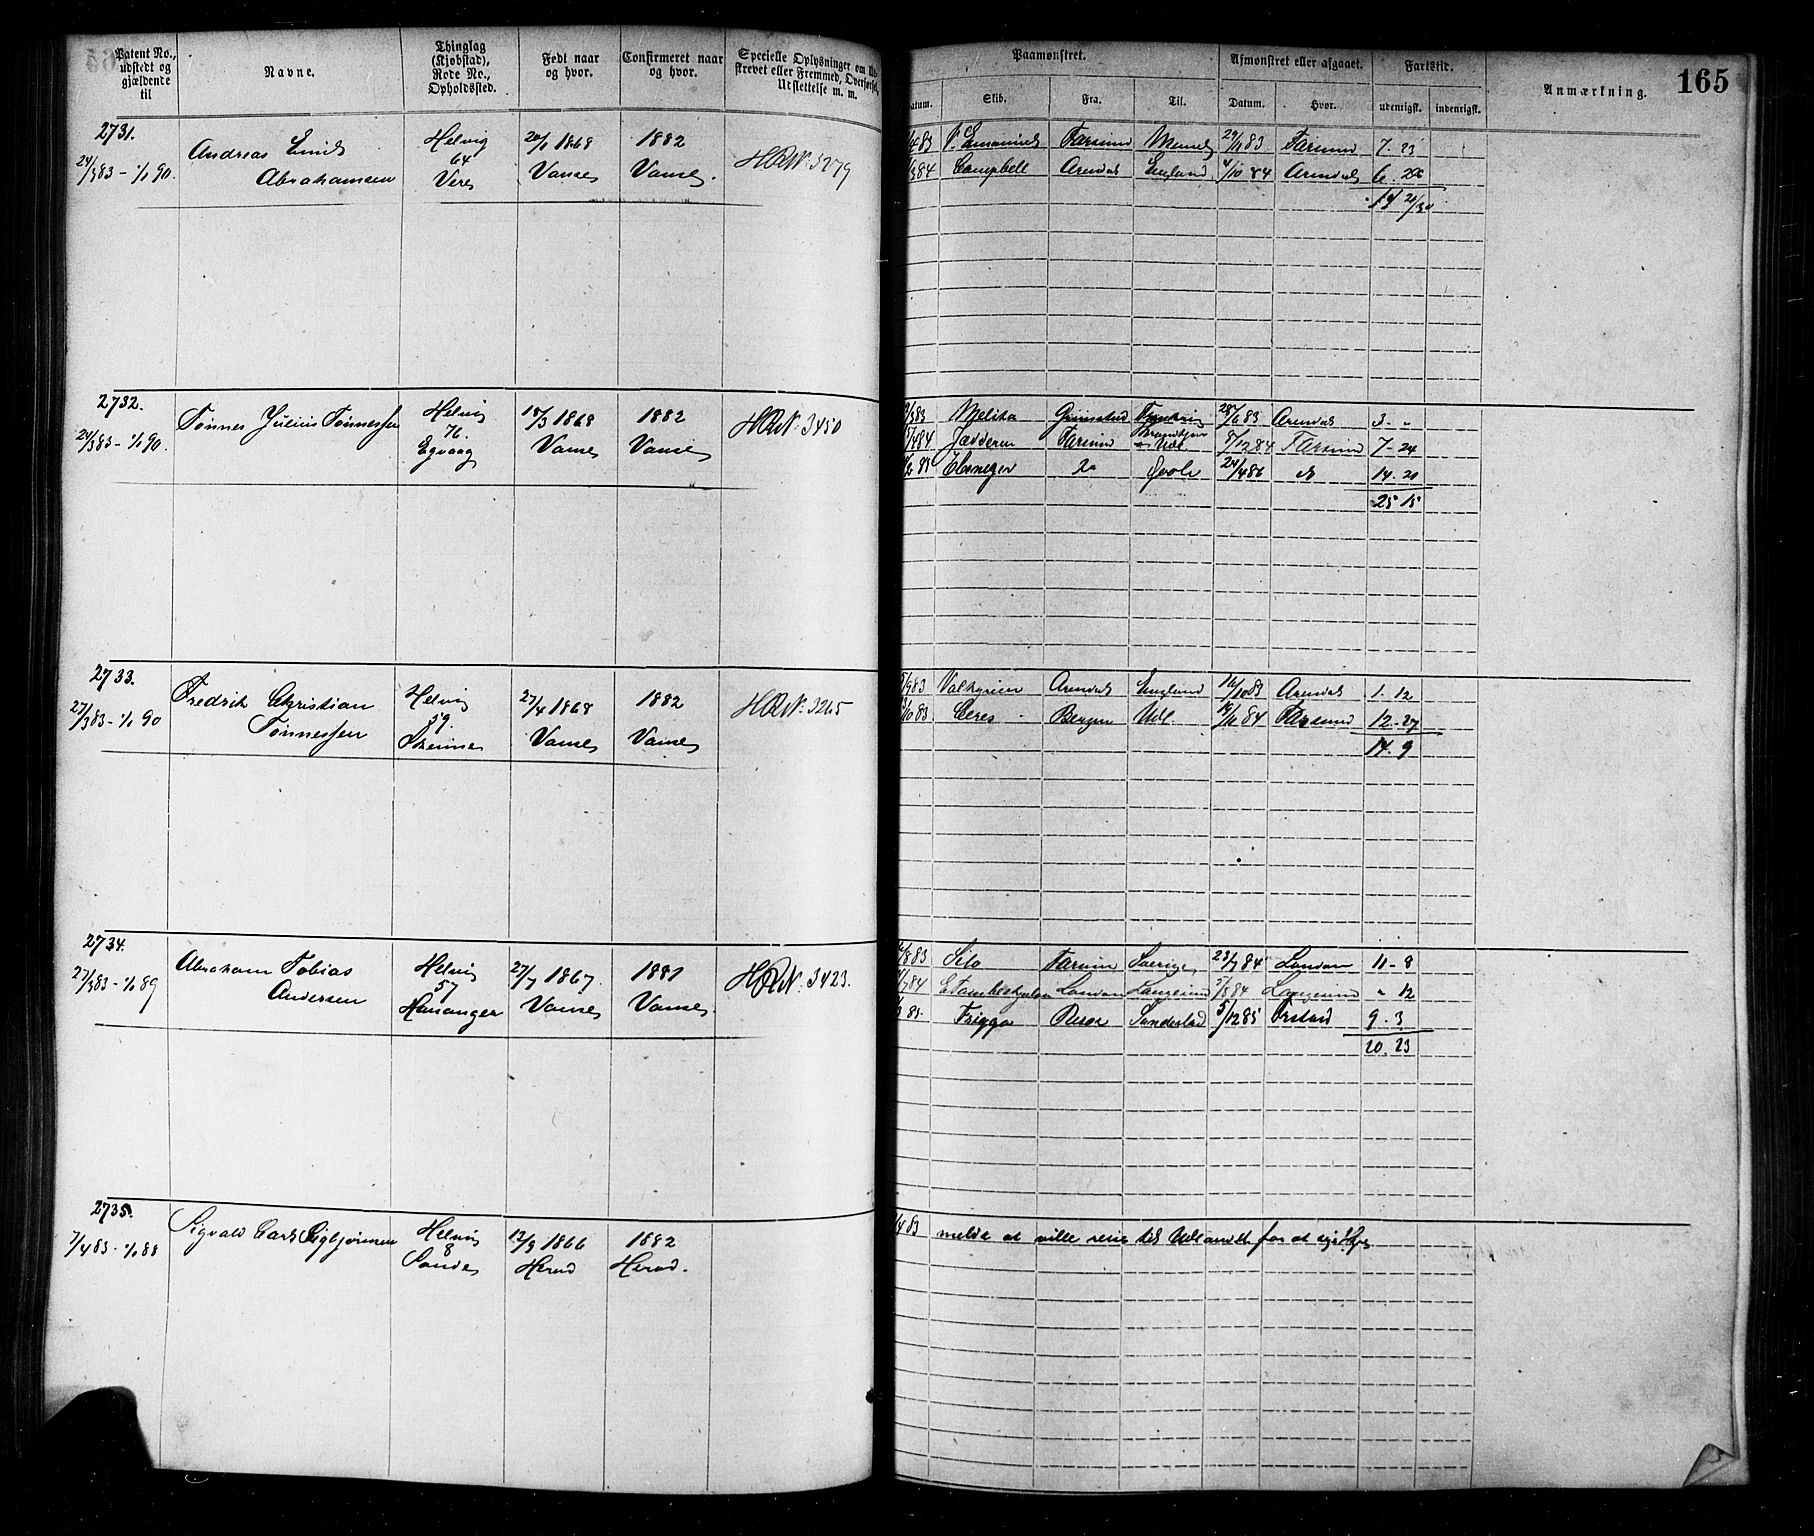 165
Patent No., udstedt og gjældende til
Navne.
Thinglag (Kjøbstad), Rode No., Opholdssted.
Født naar og hvor.
Confirmeret naar og hvor.
Specielle Oplysninger om
strevet eller Fremmed, Overførsel,
Udslettelse m. m.
Paamønstret.
Afmønstret eller afgaaet.
Fartstid.
Anmærkning.
Datum.
Skib.
Fra.
Til.
Datum.
Hvor.
udenrigsk.
indenrigsk.
2731.
24/3 83 - 1/1 90.
Andreas Emil
Abrahamsen
Helvig
64
Vere
20/1 1868
Vanse
1882
Vanse.
HR No. 3279
83 Farsund Memel 29/11 83 Farsund 7. 23
84 Campbell Arendal England 4/10 84 Arendal 6.
2732.
24/3 83 - 1/1 90.
Tønnes Julius Tønnessen
Helvig
76.
Egvaag
1868
Vanse
1882
Vanse
HR No. 3450
83 Melita Grimstad 83 Arendal 3 - "
84 Jædderen Farsund 8/12 84 Farsund 7 - 24
Ebenezer 24/4 86 do 14. 21
25 15
2733.
27/3 83 - 1/1 90
Fredrik Christian
Tønnessen
Helvig
59
27/4 1868
Vanse
1882
Vanse
HR No. 3265
83 Valkyrien Arendal England 16/10 83 Arendal 1. 12
83 Ceres Bergen Udl. 84 Farsund 12 - 27
14. 9
2734.
27/3 83 - 1/1 89
Abraham Tobias
Andersen
Helvig
57
Hananger
27/7 1867
Vanse
1881
Vanse.
HR No. 3423.
83 Farsund Sverige 23/7 84 London 11 - 8
84 London Langesund 84 Langesund " 12
85 Frigga Risør 5/12 85 9. 3
20. 23
2735.
7/4 83 - 1/1 88
Sigvald Carl Sigbjørnsen
Helvig
8
Sande
12/9 1866
Herad
1882
Herad.
83 melde at ville reise til Udlandet for at